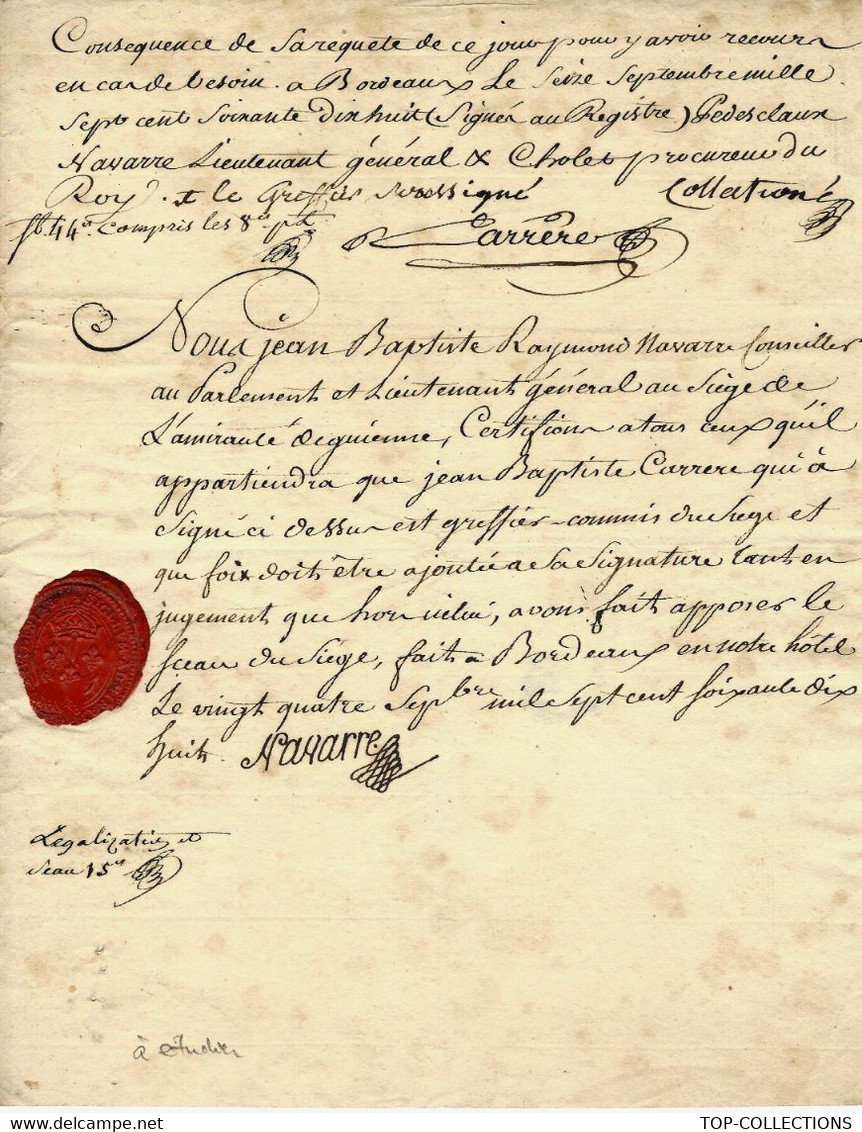 Consequence de sa requete de ce jour pour y avoir recours
en cas de besoin. a Bordeaux Le Seize Septembre mille
Sept cent Soixante dix huit (Signés au Registre) Pedesclaux
Navarre Lieutenant général & Cholet procureur du
Roy. & le Greffier Soussigné Collationé
44s. compris les 8s. pd.
Carrère
Nous jean Baptiste Raymond Navarre Conseiller
au Parlement et Lieutenant général au Siège de
L'amirauté de guienne, Certifions a tous ceux qu'il
appartiendra que jean Baptiste Carrere qui à
Signé ci dessus est greffier-commis du Siege et
que foix doit être ajoutée a Sa Signature tant en
jugement que hors icelui, avons fait apposer le
Sceau du Siége, fait a Bordeaux en notre hôtel
Le vingt quatre Sepbre mil sept cent soixante dix
huit. Navarre
Legalization et
Sceau 15s
à
TOP-COLLECTIONS